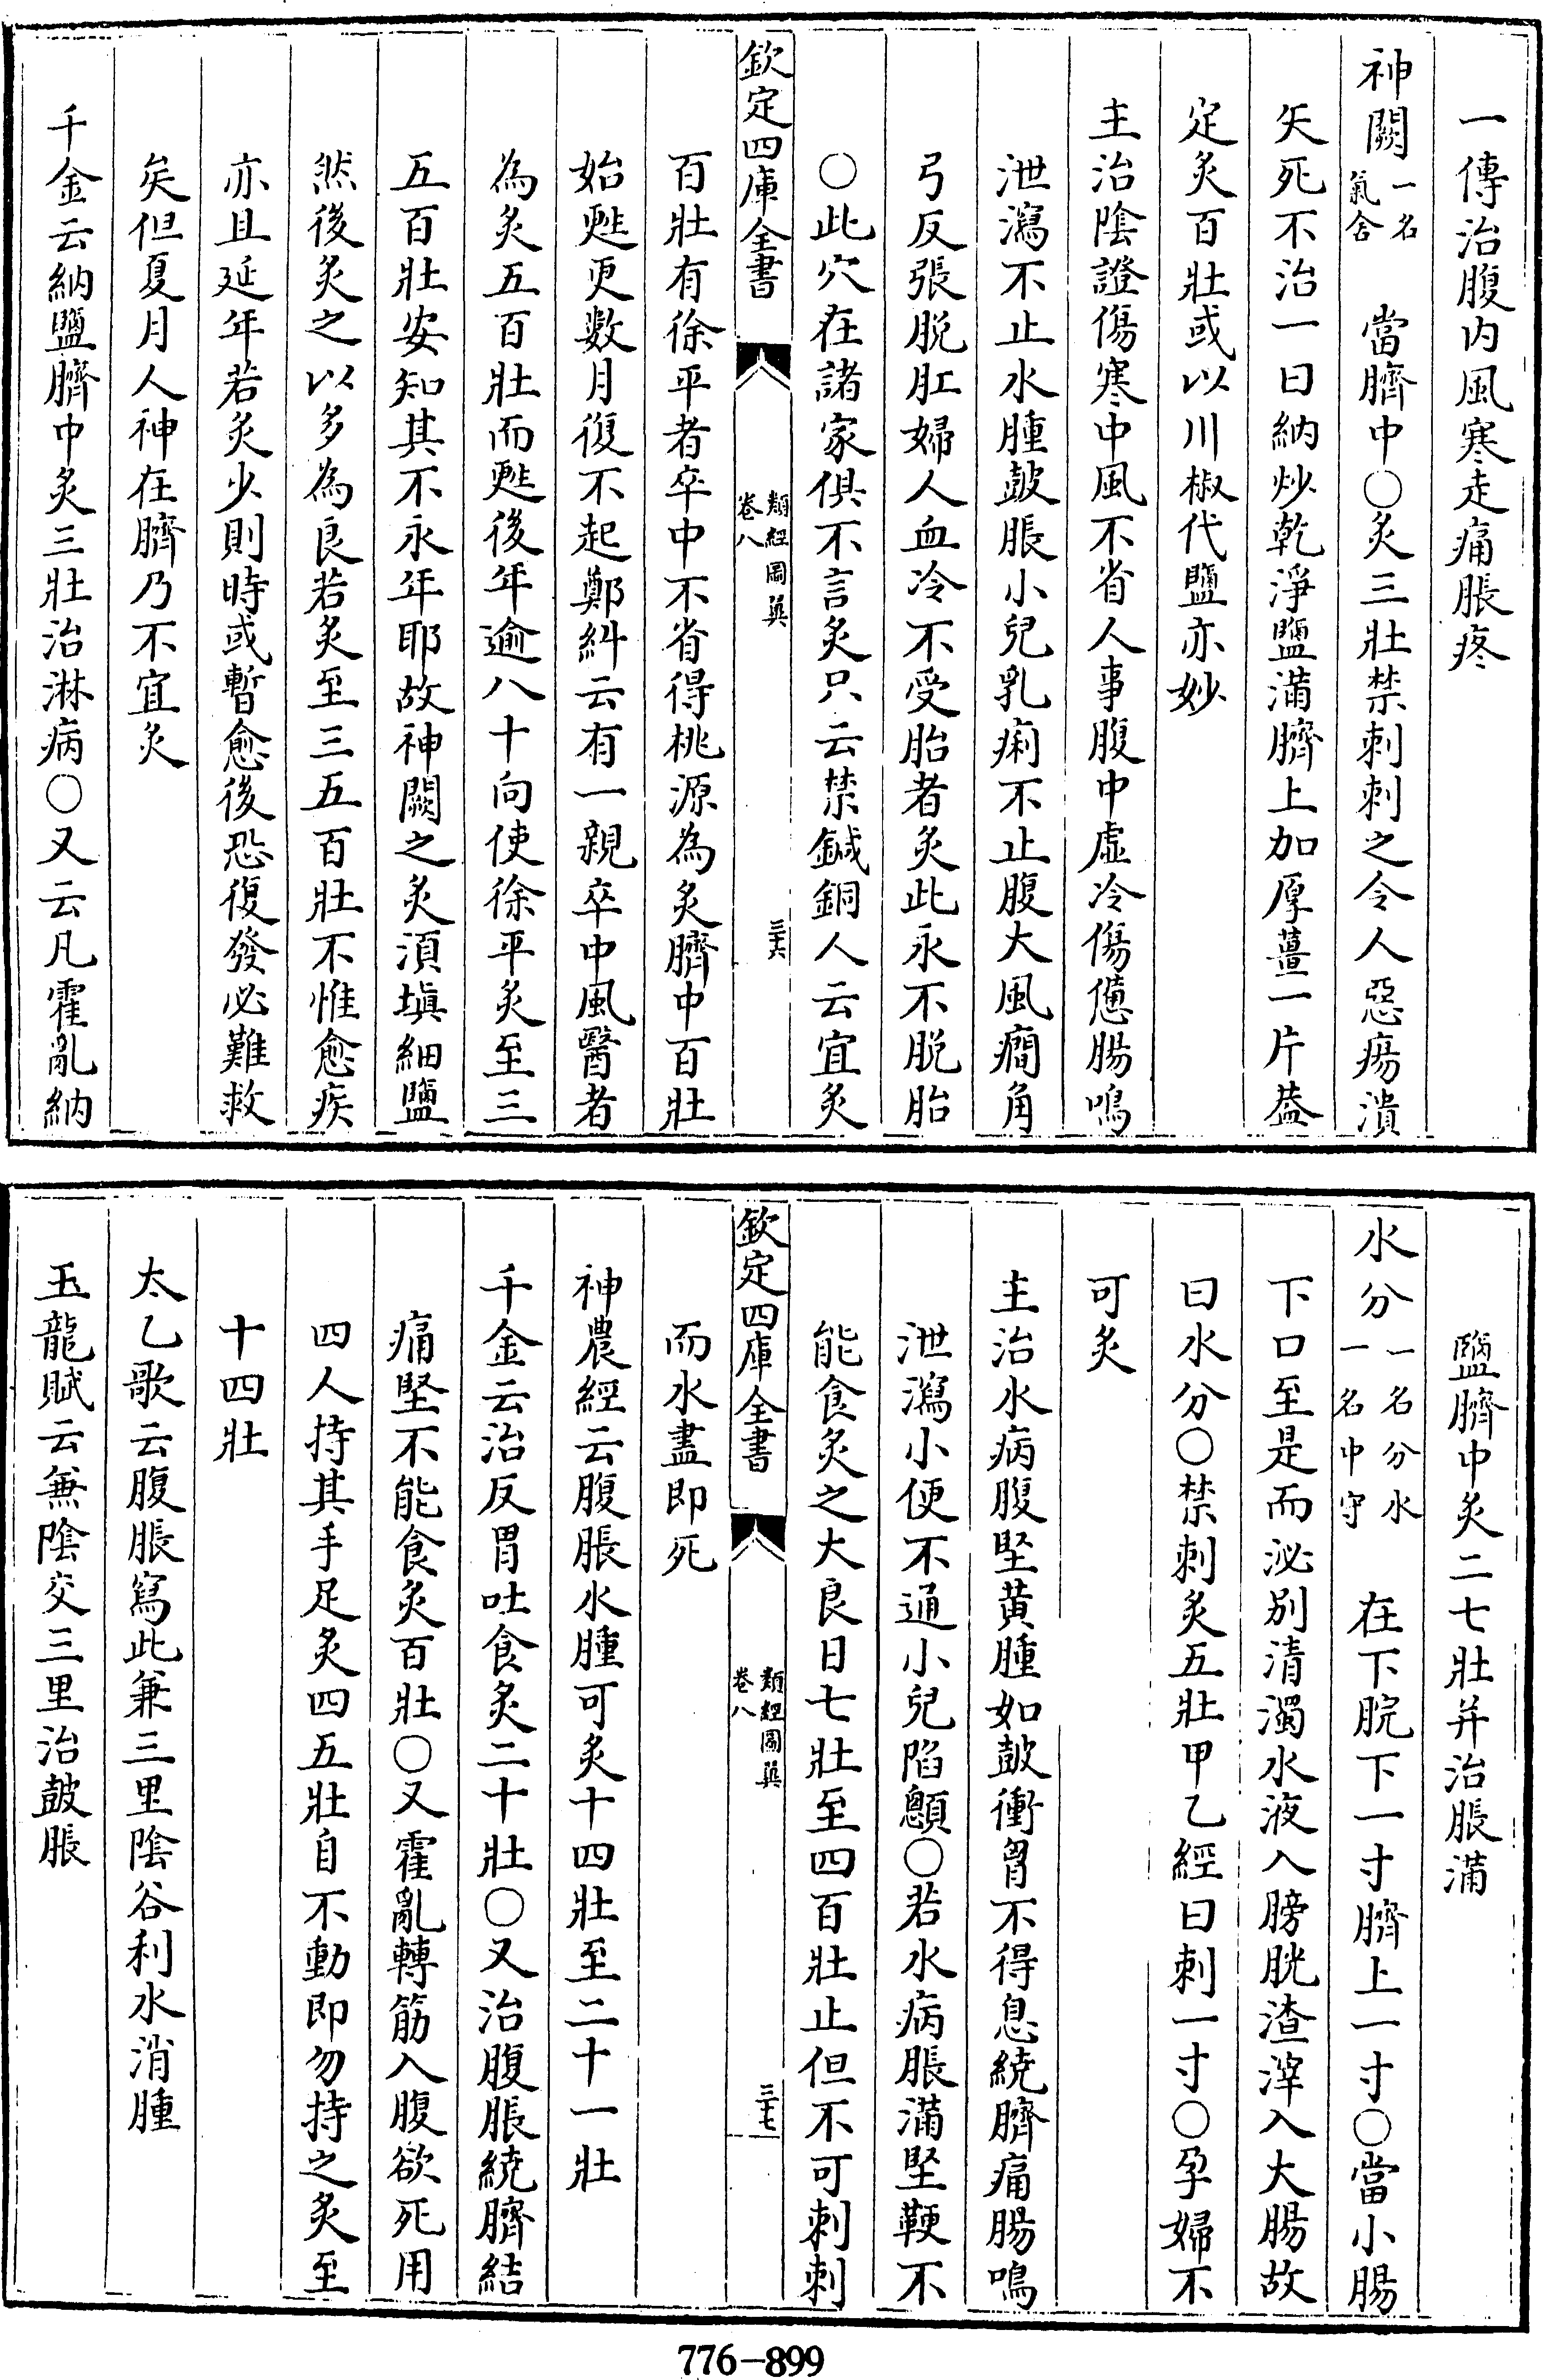 一傳治腹内風寒走痛脹疼
神闕一名氣舍 當臍中○灸三壯禁刺刺之令人惡瘍潰
矢死不治一曰納炒乾淨鹽滿臍上加厚薑一片葢
定灸百壯或以川椒代鹽亦妙
主治陰證傷寒中風不省人事腹中虛冷傷憊腸鳴
泄瀉不止水腫鼓脹小兒乳痢不止腹大風癎角
弓反張脱肛婦人血冷不受胎者灸此永不脱胎
○此穴在諸家俱不言灸只云禁鍼銅人云宜灸
欽定四庫全書 類經圖翼卷八 三十六
百壯有徐平者卒中不省得桃源為灸臍中百壯
始甦更数月復不起鄭糾云有一親卒中風醫者
為灸五百壯而甦後年逾八十向使徐平灸至三
五百壯安知其不永年耶故神闕之灸須塡細鹽
然後灸之以多為良若灸至三五百壯不惟愈疾
亦且延年若灸少則時或暫愈後恐復發必難救
矣但夏月人神在臍乃不宜灸
千金云納鹽臍中灸三壯治淋病○又云凡霍亂納
鹽臍中灸二七壯并治脹滿
水分一名分水一名中守 在下脘下一寸臍上一寸○當小腸
下口至是而泌別清濁水液入膀胱渣滓入大腸故
曰水分○禁刺灸五壯甲乙經曰刺一寸○孕婦不
可灸
主治水病腹堅黃腫如鼓衝胷不得息繞臍痛腸鳴
泄瀉小便不通小兒陷顖○若水病脹滿堅鞕不
能食灸之大良日七壯至四百壯止但不可刺刺
欽定四庫全書 類經圖翼卷八 三十七
而水盡即死
神農經云腹脹水腫可灸十四壯至二十一壯
千金云治反胃吐食灸二十壯○又治腹脹繞臍結
痛堅不能食灸百壯○又霍亂轉筋入腹欲死用
四人持其手足灸四五壯自不動即勿持之灸至
十四壯
太乙歌云腹脹寫此兼三里陰谷利水消腫
玉龍賦云兼陰交三里治鼓脹
776-899